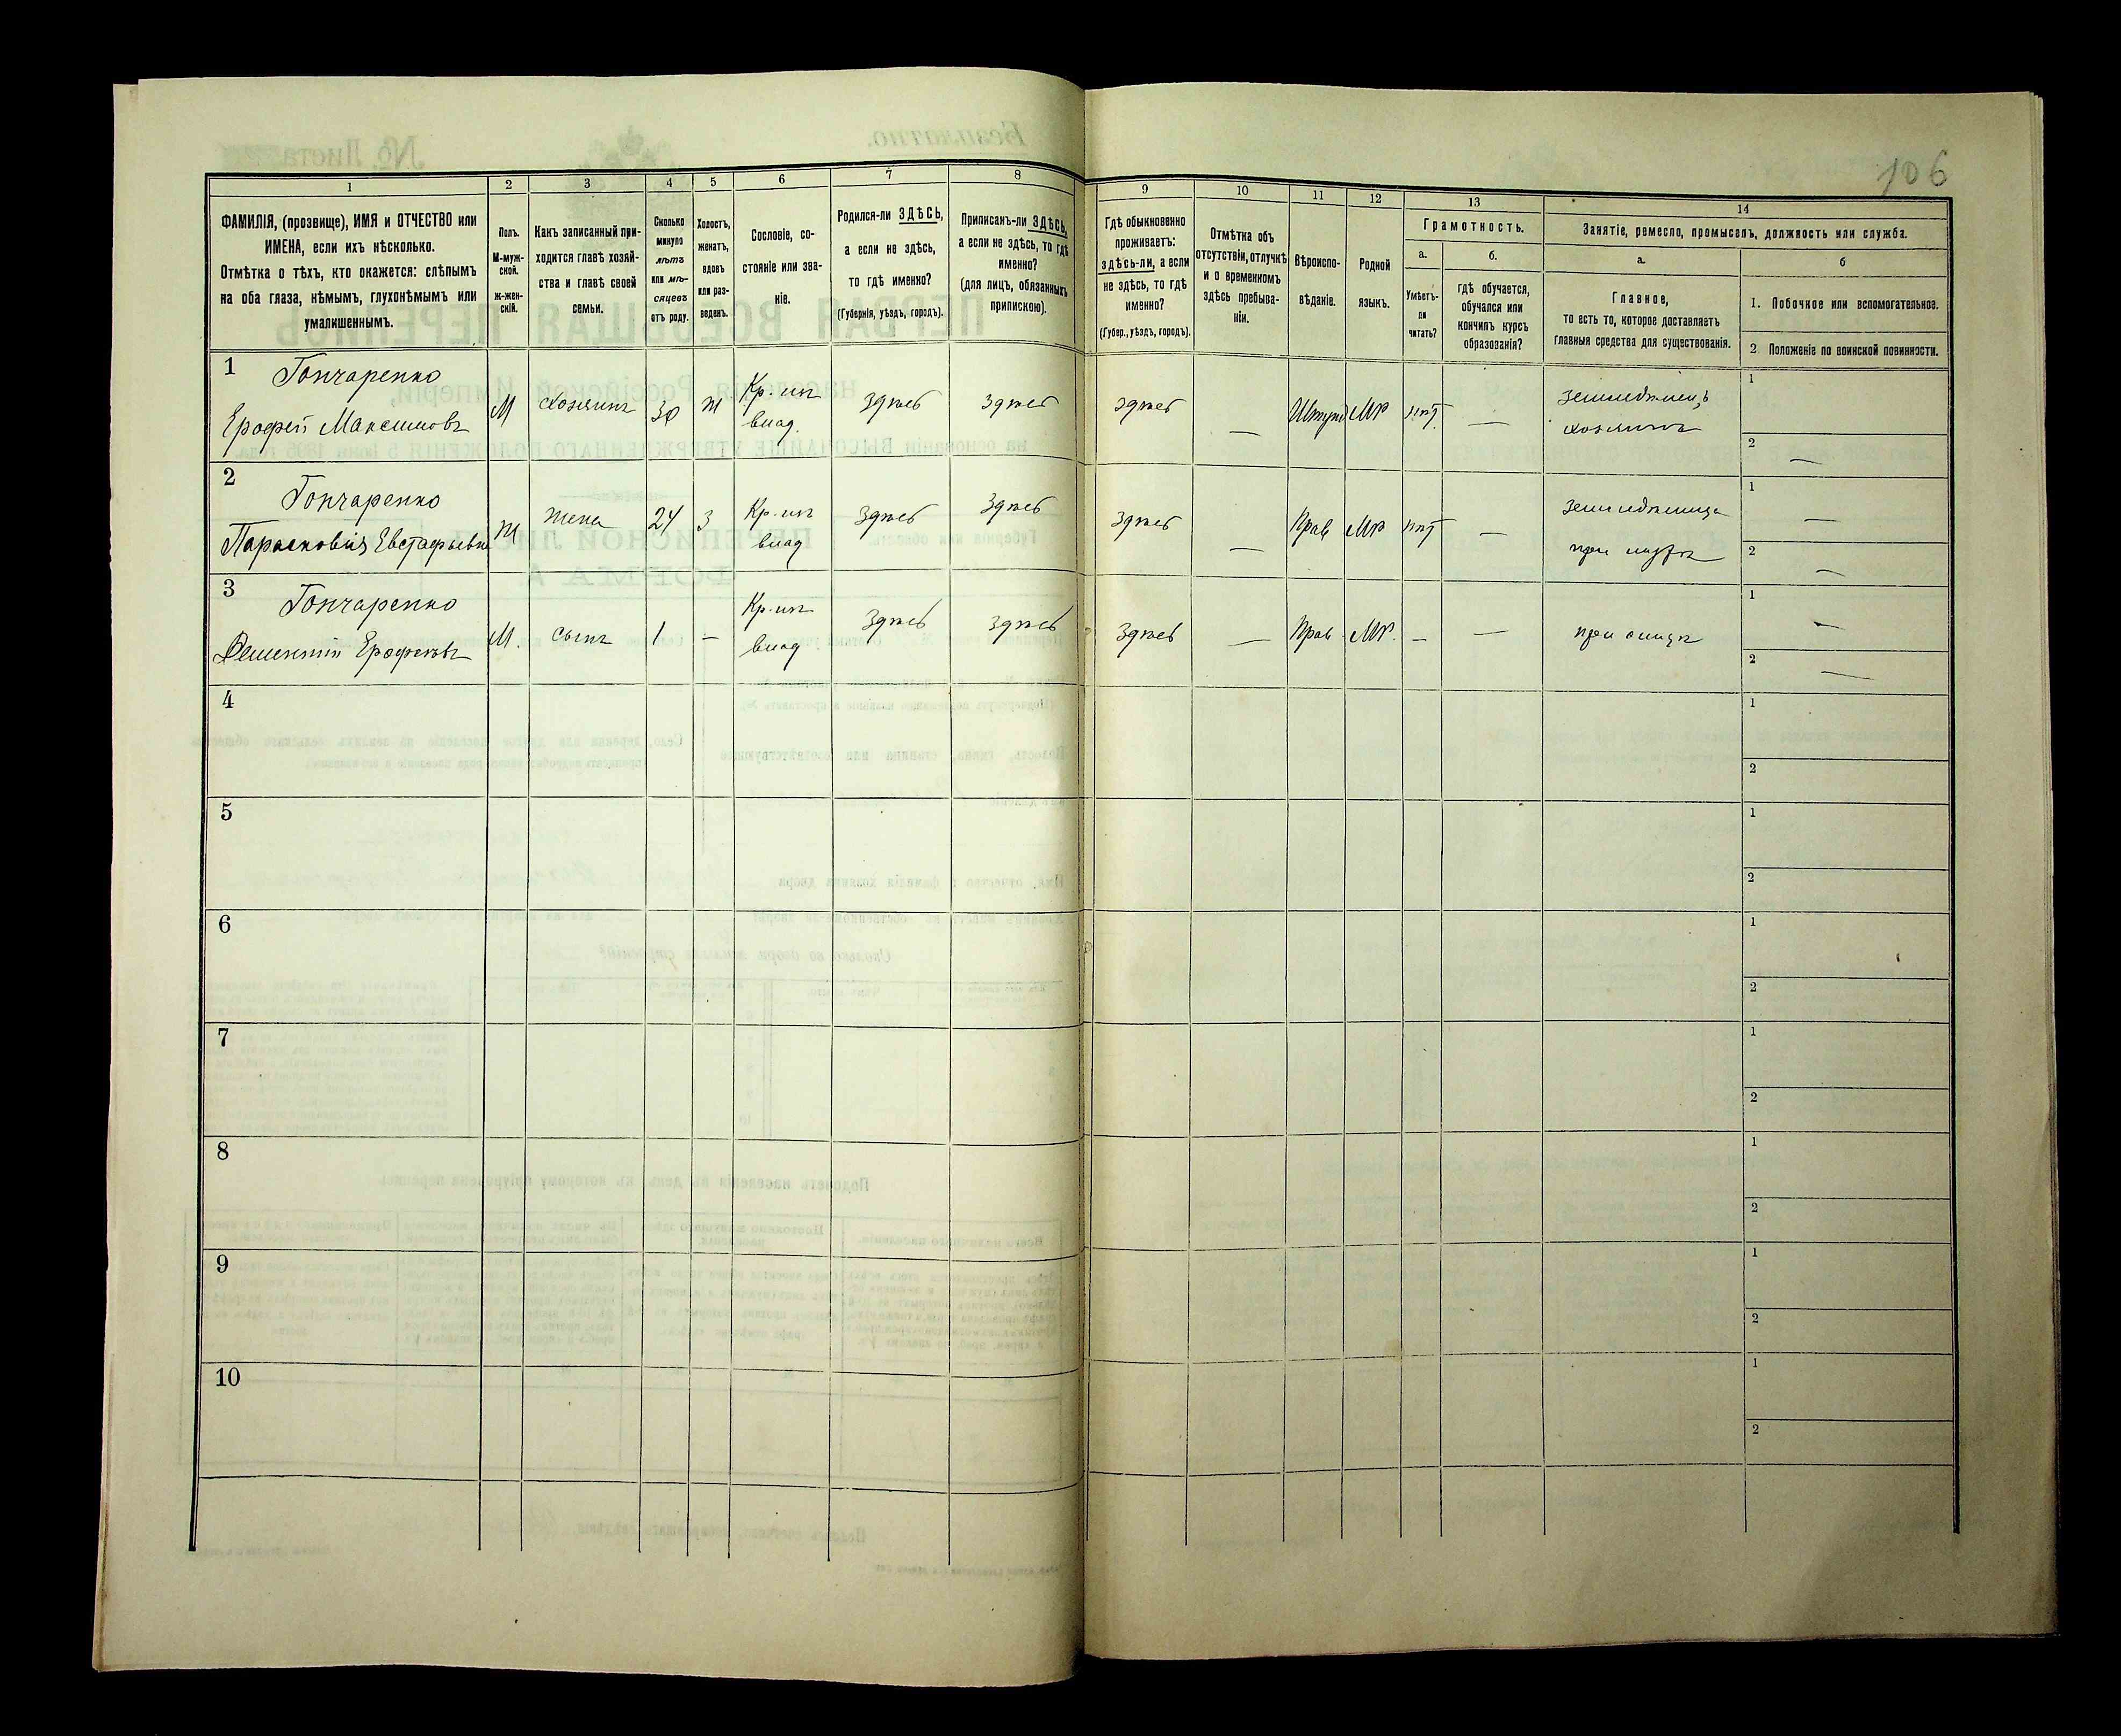 106
1 2 3 4 5 6 7 8 9 10 11 12 13 14
ФАМИЛІЯ, (прозвище), ИМЯ и ОТЧЕСТВО или
ИМЕНА, если ихъ нѣсколько.
Отмѣтка о тѣхъ, кто окажется: слѣпымъ
на оба глаза, нѣмымъ, глухонѣмымъ или
умалишеннымъ.
Полъ.
М-муж-
ской.
Ж-жен-
скій.
Какъ записанный при-
ходится главѣ хозяй-
ства и главѣ своей
семьи.
Сколько
минуло
лѣтъ
или мѣ-
сяцевъ
отъ роду.
Холостъ,
женатъ,
вдовъ
или раз-
веденъ.
Сословіе, со-
стояніе или зва-
ніе.
Родился-ли ЗДѢСЬ,
а если не здѣсь,
то гдѣ именно?
(Губернія, уѣздъ, городъ).
Приписанъ-ли ЗДѢСЬ,
а если не здѣсь, то гдѣ
именно?
(для лицъ, обязанныхъ
припискою).
Гдѣ обыкновенно
проживаетъ:
здѣсь-ли, а если
не здѣсь, то гдѣ
именно?
(Губер., уѣздъ, городъ).
Отмѣтка объ
отсутствіи, отлучкѣ
и о временномъ
здѣсь пребыва-
ніи.
Вѣроиспо-
вѣданіе.
Родной
языкъ.
Грамотность.
а.
Умѣетъ-
ли
читать?
б.
гдѣ обучается,
обучался или
кончилъ курсъ
образованія?
Занятіе, ремесло, промыселъ, должность или служба.
а.
Главное,
то есть то, которое доставляетъ
главныя средства для существованія.
б
1. Побочное или вспомогательное.
2 Положеніе по воинской повинности.
1 Гончаренко
Ерофей Максимовъ
М
хозяинъ
30
ж
Кр. изъ
влад.
здѣсь
здѣсь
здѣсь
—
Штунд
Мр
нѣт
—
земледѣлецъ
хозяинъ
1
2 —
2 Гончаренко
Парасковія Евстафьевна
ж
жена
24
з
Кр. изъ
влад
здѣсь
здѣсь
здѣсь
—
Прав
Мр
нѣт
—
земледѣлица
при мужѣ
1 —
2 —
3 Гончаренко
Ерофеевъ
М.
сынъ
1
—
Кр. изъ
влад
здѣсь
здѣсь
здѣсь
—
Прав.
Мр.
—
—
при отцѣ
1 —
2 —
4
1
2
5
1
2
6
1
2
7
1
2
8
1
2
9
1
2
10
1
2